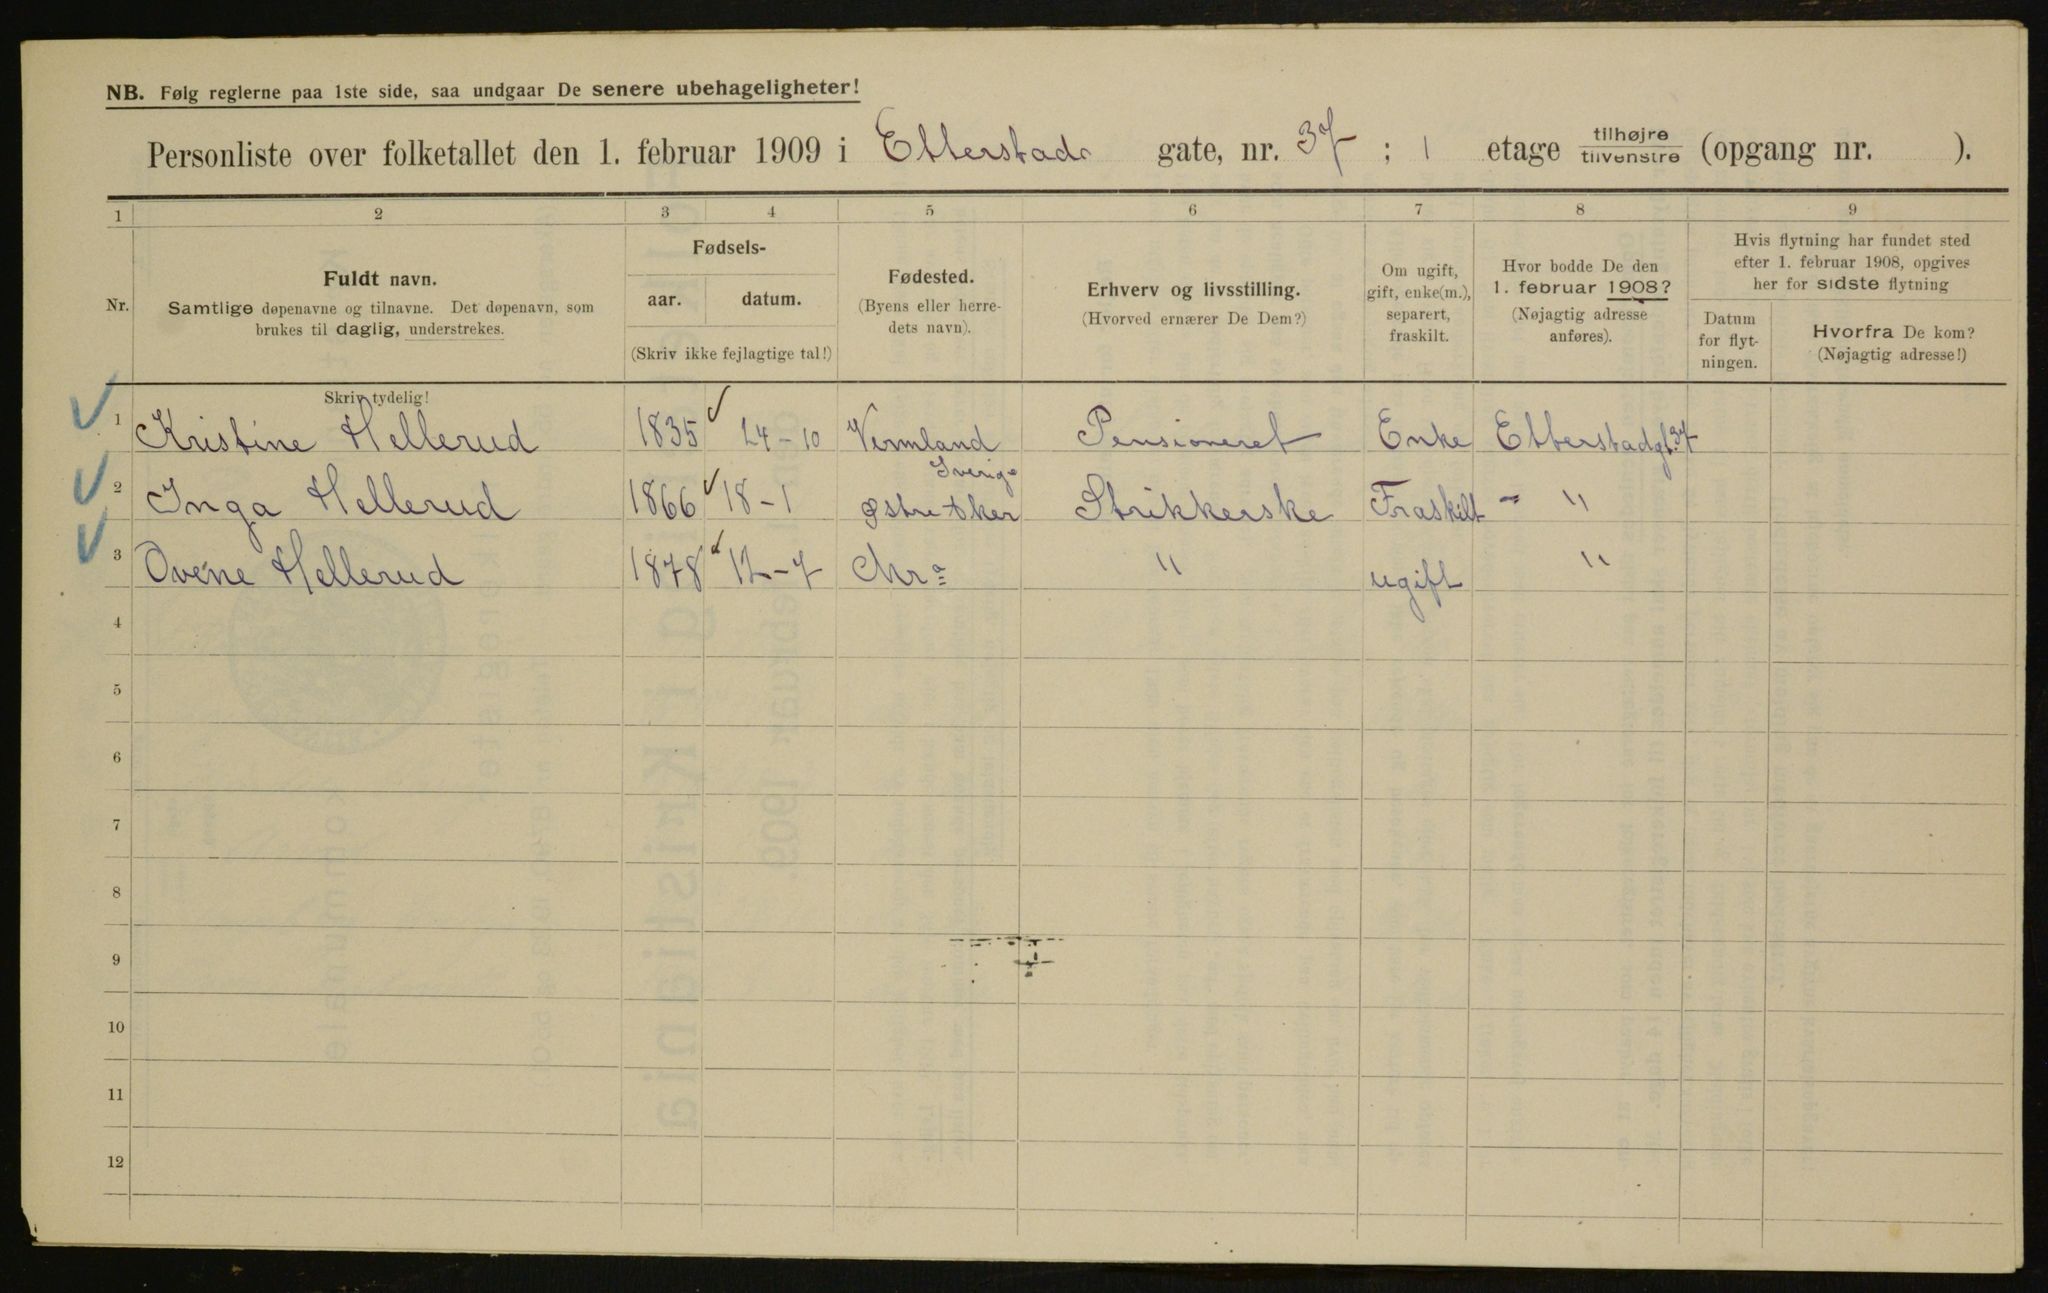 NB. Følg reglerne paa 1ste side, saa undgaar De senere ubehageligheter!
Personliste over folketallet den 1. februar 1909 i Etterstad gate, nr. 37 ; 1 etage tilhøjre / tilvenstre (opgang nr. ).
1 2 3 4 5 6 7 8 9
Nr.
Fuldt navn.
Samtlige døpenavne og tilnavne. Det døpenavn, som
brukes til daglig, understrekes.
Fødsels-
aar. datum.
(Skriv ikke fejlagtige tal!)
Fødested.
(Byens eller herre-
dets navn).
Erhverv og livsstilling.
(Hvorved ernærer De Dem?)
Om ugift,
gift, enke(m.),
separert,
fraskilt.
Hvor bodde De den
1. februar 1908?
(Nøjagtig adresse
anføres).
Hvis flytning har fundet sted
efter 1. februar 1908, opgives
her for sidste flytning
Datum
for flyt-
ningen.
Hvorfra De kom?
(Nøjagtig adresse!)
Skriv tydelig!
1 Kristine Hellerud 1835 24-10 Vermland Sverige Pensioneret Enke Etterstadgt. 37
2 Inga Hellerud 1866 18-1 Østre Aker Strikkerske Fraskilt - "
3 Ovene Hellerud 1878 12-7 Chra " ugift "
4
5
6
7
8
9
10
11
12